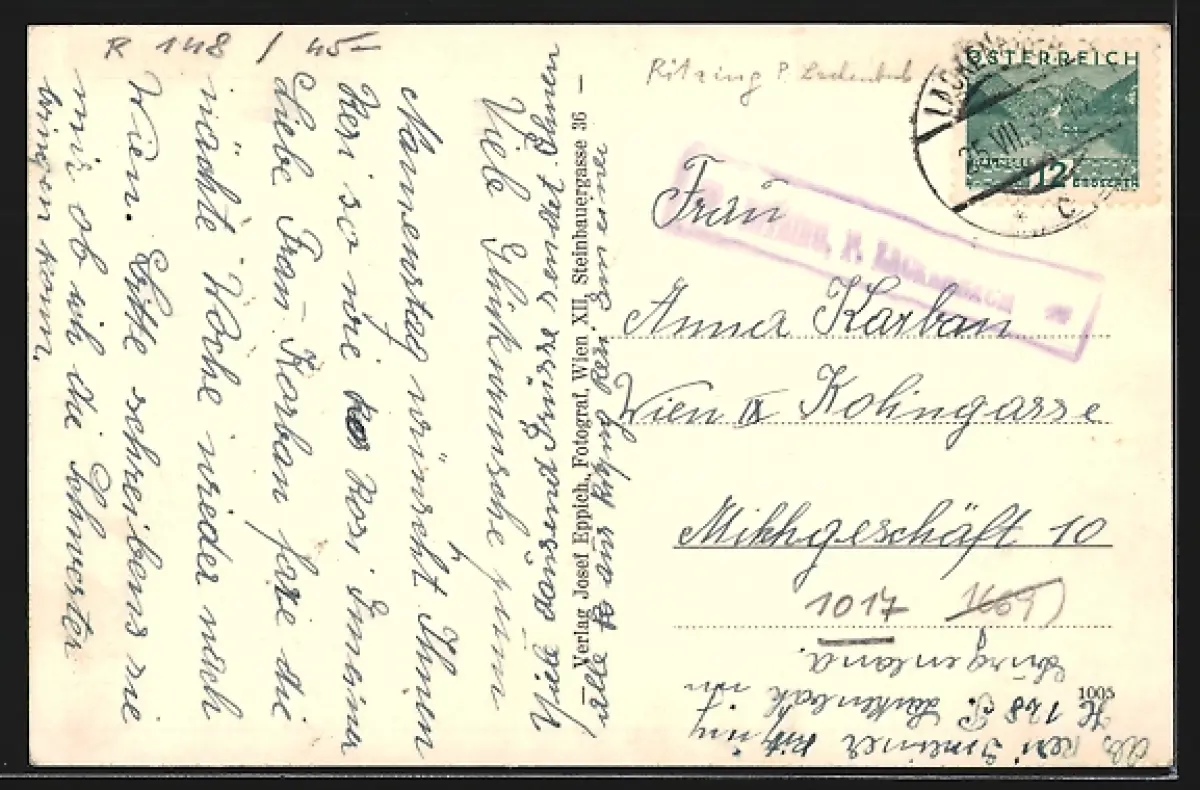 R 148 / 45-
Ritzing P. Lackenbach
ÖSTERREICH
12
GROSCHEN
25. VII. 3
C
RITZING, P. LACKENBACH
Frau
Anna Karban
Wien IX Kolingasse
Milchgeschäft 10
1017
1005
— Verlag Josef Eppich, Fotograf, Wien XII, Steinbauergasse 36 —
Viele Glückwünsche zum
Namenstag wünscht Ihnen
Resi so wie Rosi
Liebe Frau Karban fare die
nächte Woche wieder nach
Wien. Bitte schreibens sie
mir ob ich die Schwester
bringen kann.
Viele dausend Grüsse sendet Ihnen
alle aus Resi
Ab. Resi Ritzing
N 148 P. Lackenbach
Burgenland.